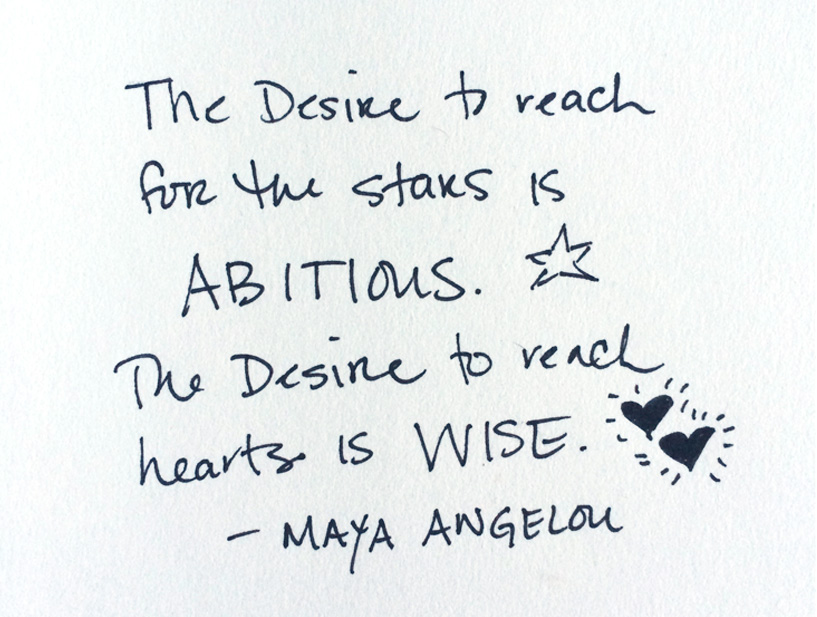 The Desire to reach
for the stars is
ABITIOUS.
The Desire to reach
hearts is WISE.
- MAYA ANGELOU